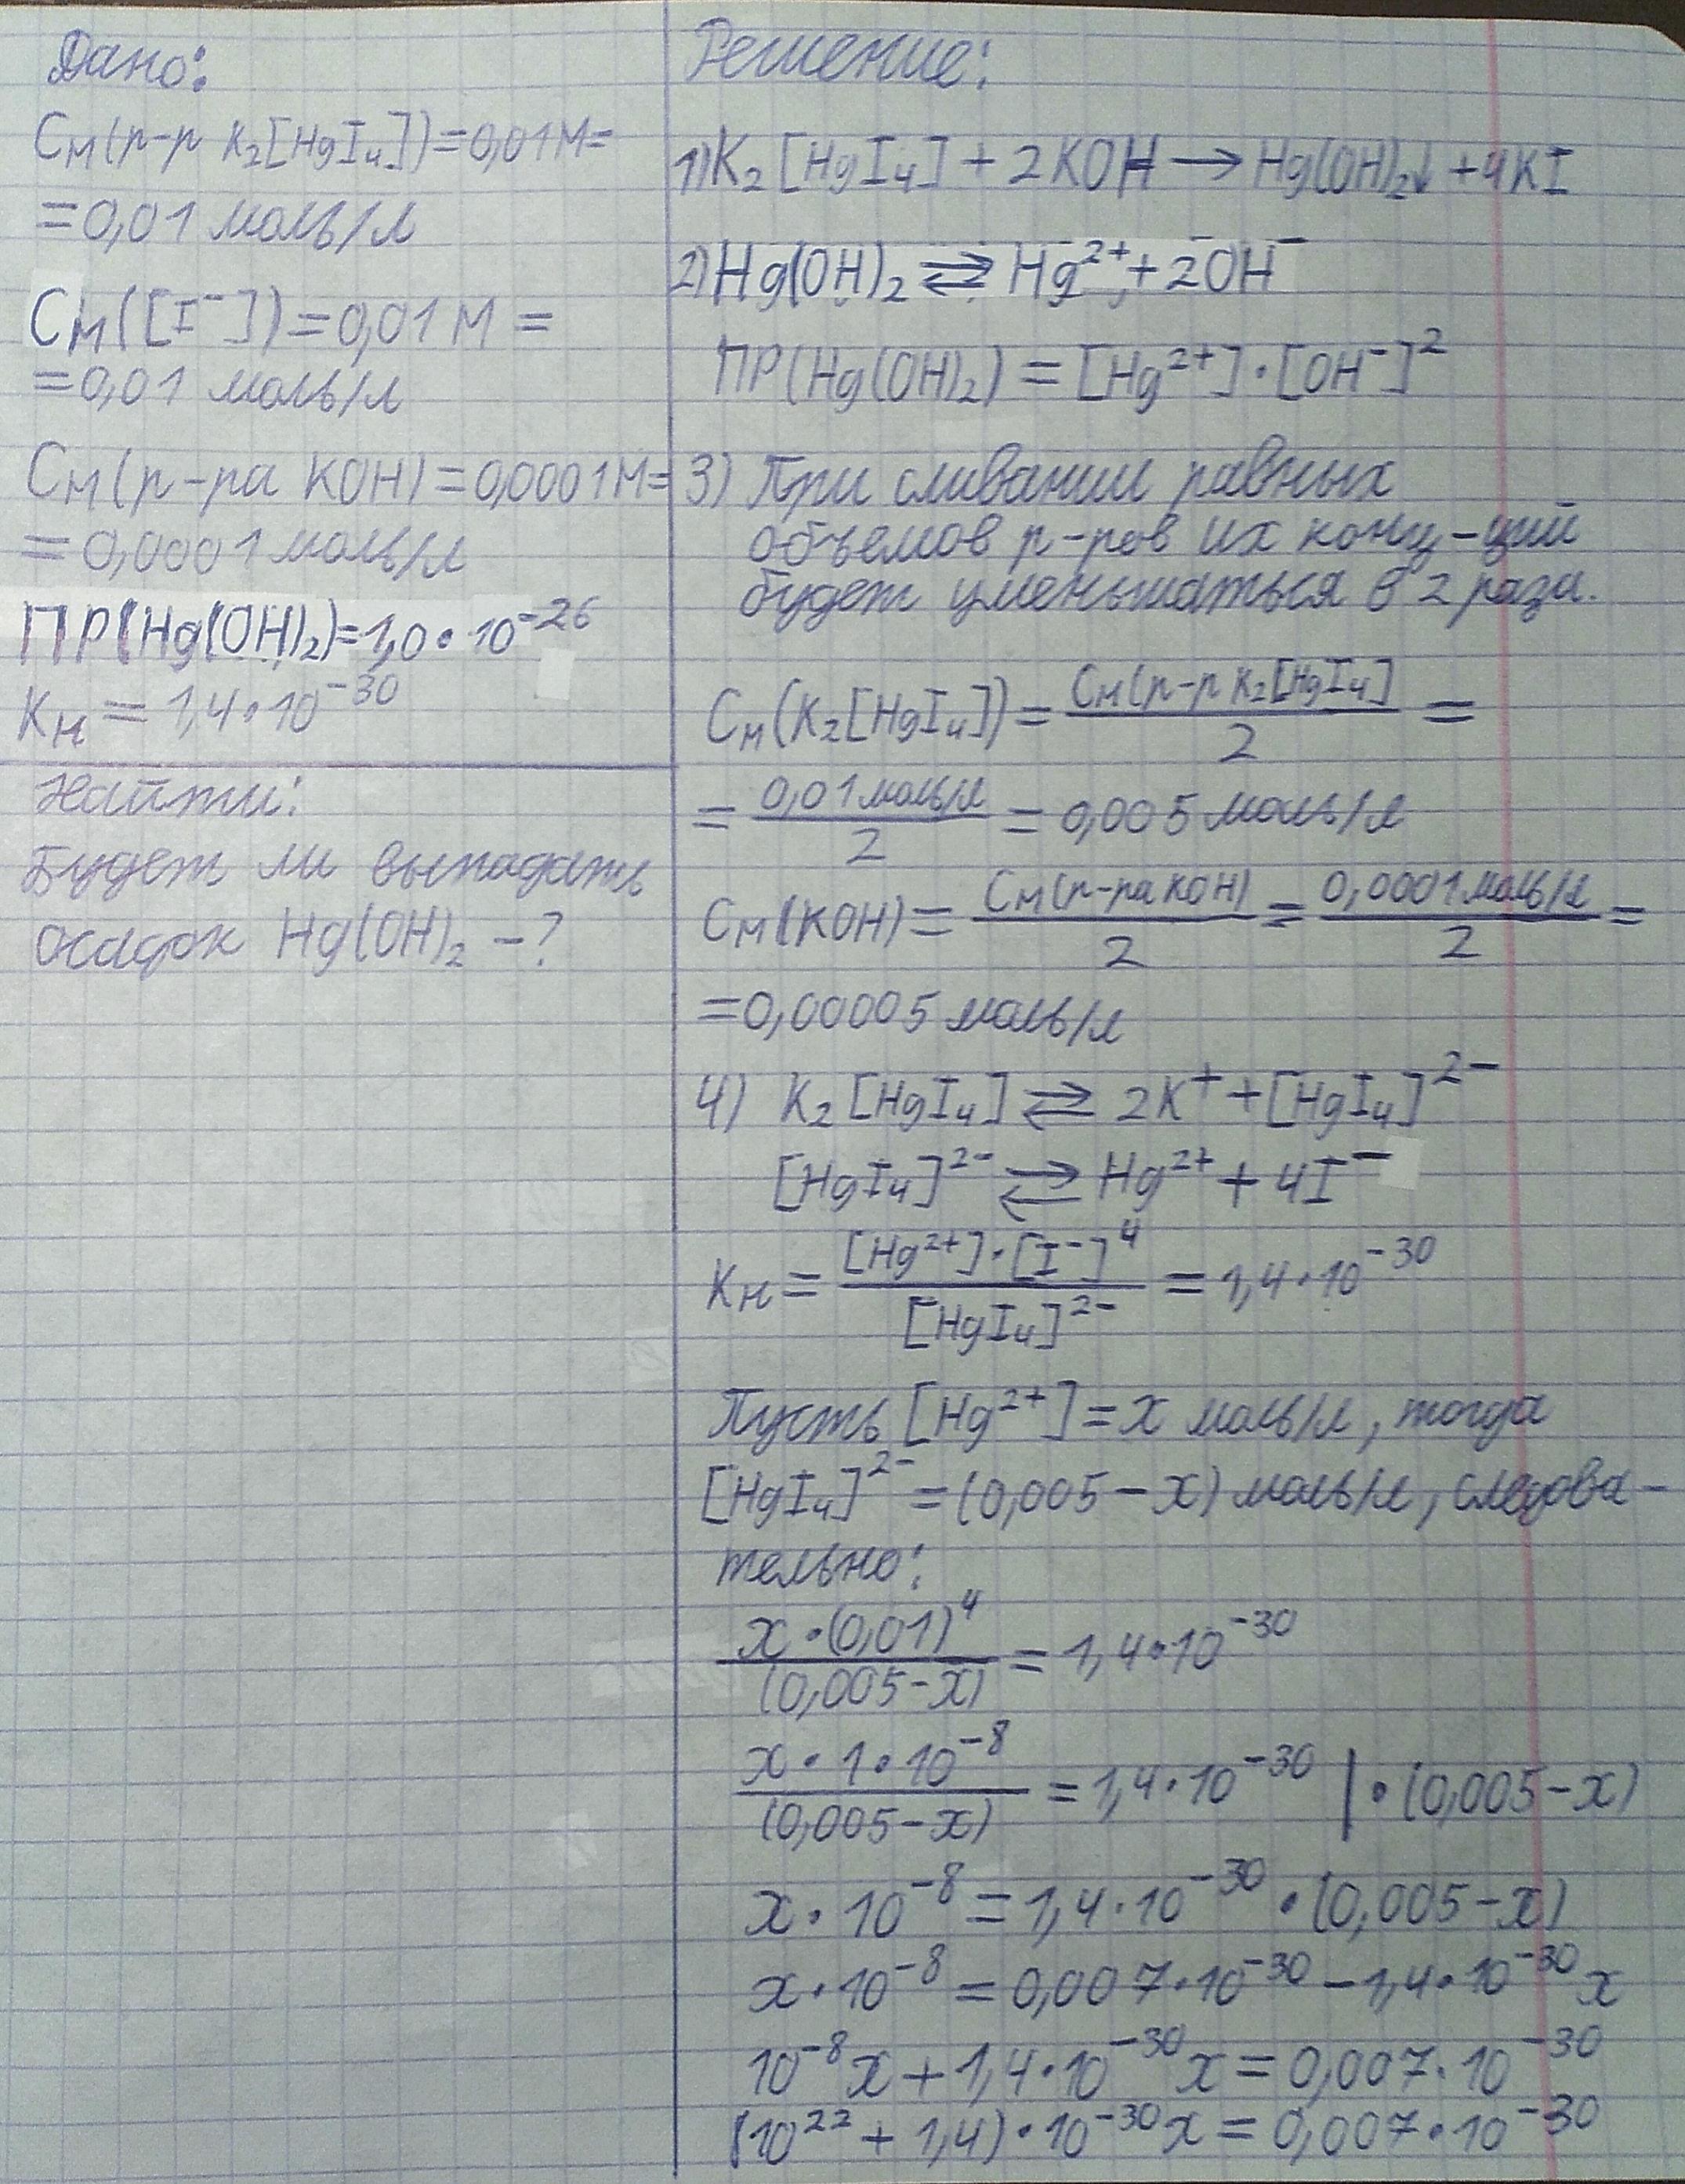 Дано:
См(р-р K₂[HgI₄])=0,01М=
=0,01 моль/л
См([I⁻])=0,01 М =
=0,01 моль/л
См(р-ра KOH)=0,0001М=
=0,0001 моль/л
ПР(Hg(OH)₂)=1,0·10⁻²⁶
Kн = 1,4·10⁻³⁰
Найти:
Будет ли выпадать
осадок Hg(OH)₂ -?
Решение:
1) K₂[HgI₄] + 2KOH → Hg(OH)₂↓ + 4KI
2) Hg(OH)₂ ⇄ Hg²⁺ + 2OH⁻
ПР(Hg(OH)₂) = [Hg²⁺]·[OH⁻]²
3) При сливании равных
объемов р-ров их конц-ций
будет уменьшаться в 2 раза.
См(K₂[HgI₄]) = См(р-р K₂[HgI₄] / 2 =
= 0,01 моль/л / 2 = 0,005 моль/л
См(KOH) = См(р-ра KOH) / 2 = 0,0001 моль/л / 2 =
=0,00005 моль/л
4) K₂[HgI₄] ⇄ 2K⁺ + [HgI₄]²⁻
[HgI₄]²⁻ ⇄ Hg²⁺ + 4I⁻
Kн = [Hg²⁺]·[I⁻]⁴ / [HgI₄]²⁻ = 1,4·10⁻³⁰
Пусть [Hg²⁺] = x моль/л, тогда
[HgI₄]²⁻ = (0,005 - x) моль/л, следова-
тельно:
x·(0,01)⁴ / (0,005-x) = 1,4·10⁻³⁰
x·1·10⁻⁸ / (0,005-x) = 1,4·10⁻³⁰ |·(0,005-x)
x·10⁻⁸ = 1,4·10⁻³⁰·(0,005-x)
x·10⁻⁸ = 0,007·10⁻³⁰ - 1,4·10⁻³⁰x
10⁻⁸x + 1,4·10⁻³⁰x = 0,007·10⁻³⁰
(10²² + 1,4)·10⁻³⁰x = 0,007·10⁻³⁰